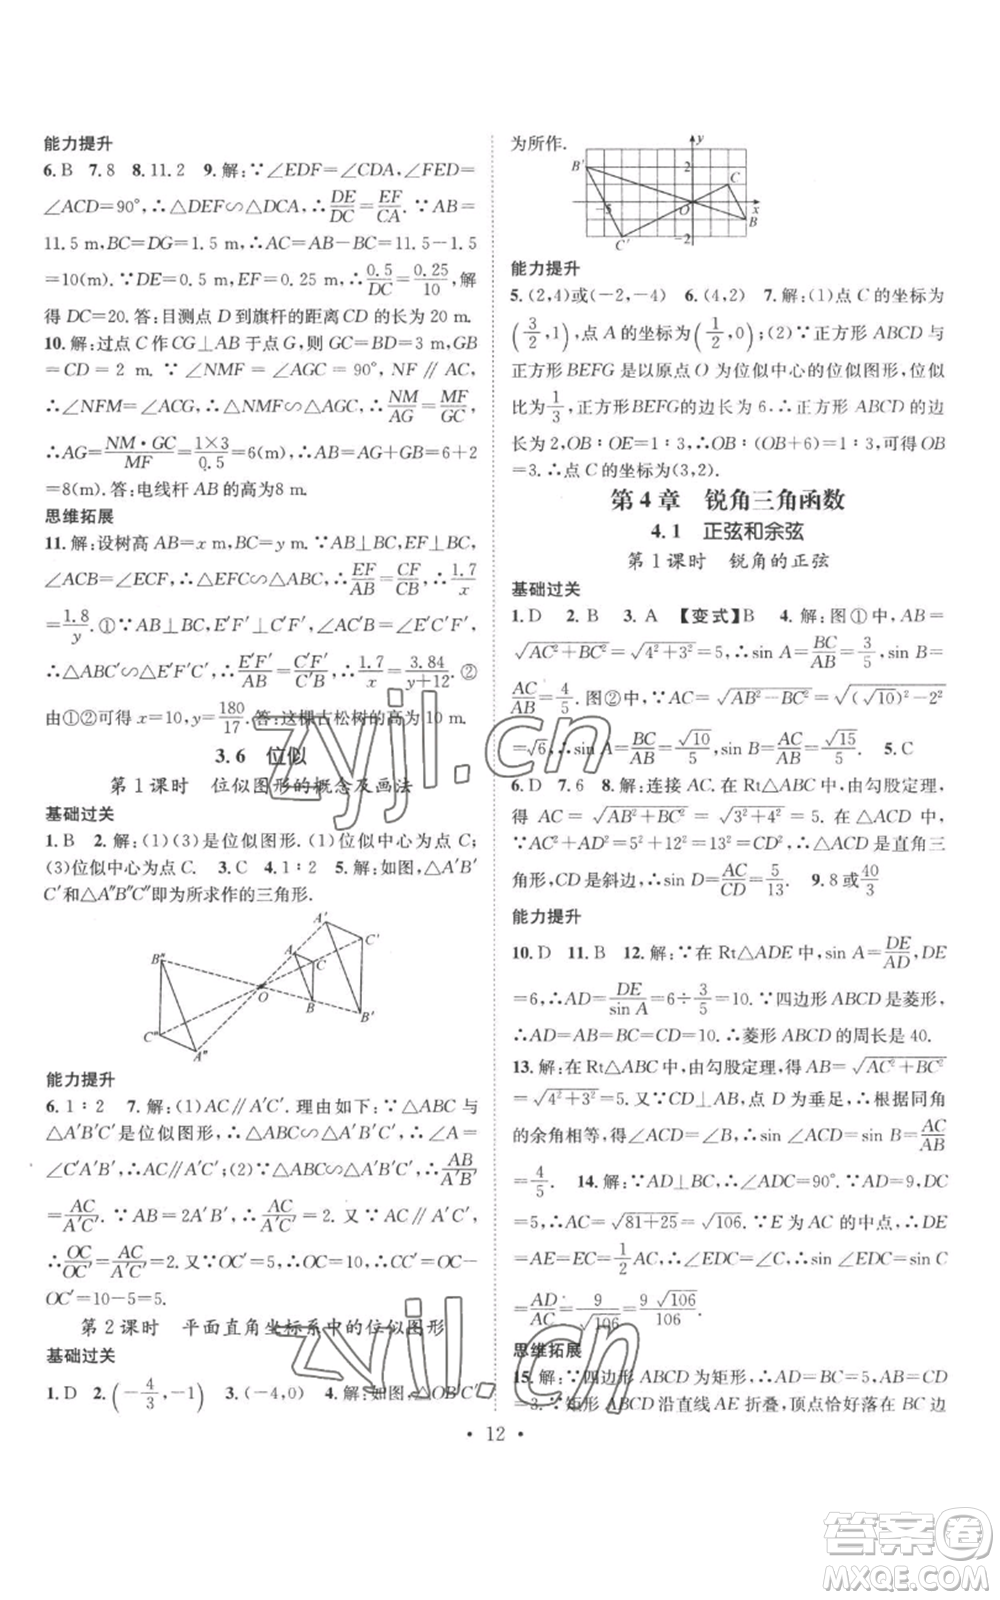 能力提升
6. B 7. 8 8. 11. 2 9. 解:∵∠EDF=∠CDA,∠DEF=
∠ACD=90°,∴△DEF∽△DCA,∴DE/DC=EF/CA. ∵AB=
11. 5 m,BC=DG=1. 5 m,∴AC=AB-BC=11. 5-1. 5
=10(m). ∵DE=0. 5 m,EF=0. 25 m,∴0.5/DC=0.25/10,解
得 DC=20. 答:目测点 D 到旗杆的距离 CD 的长为 20 m.
10. 解:过点 C 作 CG⊥AB 于点 G,则 GC=BD=3 m,GB
=CD=2 m. ∵∠NMF=∠AGC=90°,NF∥AC,
∴∠NFM=∠ACG,∴△NMF∽△AGC,∴NM/AG=MF/GC,
∴AG=NM·GC/MF=1×3/0.5=6(m),∴AB=AG+GB=6+2
=8(m). 答:电线杆 AB 的高为8 m.
思维拓展
11. 解:设树高 AB=x m,BC=y m,∵AB⊥BC,EF⊥BC,
∠ACB=∠ECF,∴△EFC∽△ABC,∴EF/AB=CF/CB,∴1.7/x
=1.8/y. ①∵AB⊥BC,E′F′⊥BC,∠AC′B=∠E′C′F′,
∴△ABC′∽△E′F′C′,∴E′F′/AB=C′F′/BC′,∴1.7/x=3.84/y+12. ②
由①②可得 x=10,y=180/17. 答:这棵古松树的高为 10 m.
3. 6 位似
第 1 课时 位似图形的概念及画法
基础过关
1. B 2. 解:(1)(3)是位似图形. (1)位似中心为点 C;
(3)位似中心为点 C. 3. C 4. 1∶2 5. 解:如图,△A′B′
C′和△A″B″C″即为所求作的三角形.
A′
A
C′
C
B″
O
B
B′
C″
A″
能力提升
6. 1∶2 7. 解:(1)AC∥A′C′. 理由如下:∵△ABC 与
△A′B′C′是位似图形,∴△ABC∽△A′B′C′,∴∠A=
∠C′A′B′,∴AC∥A′C′;(2)∵△ABC∽△A′B′C′,∴AB/A′B′
=AC/A′C′. ∵AB=2A′B′,∴AC/A′C′=2. 又∵AC∥A′C′,
∴OC/OC′=AC/A′C′=2. 又∵OC′=5,∴OC=10,∴CC′=OC-
OC′=10-5=5.
第 2 课时 平面直角坐标系中的位似图形
基础过关
1. D 2. (-4/3,-1) 3. (-4,0) 4. 解:如图,△OB′C′
为所作.
y
B′
2
C
-5
O
x
B
C′
-2
能力提升
5. (2,4)或(-2,-4) 6. (4,2) 7. 解:(1)点 C 的坐标为
(3/2,1),点 A 的坐标为(1/2,0);(2)∵正方形 ABCD 与
正方形 BEFG 是以原点 O 为位似中心的位似图形,位似
比为1/3,正方形BEFG的边长为 6,∴正方形 ABCD 的边
长为 2,OB∶OE=1∶3,∴OB∶(OB+6)=1∶3,可得 OB
=3. ∴点 C 的坐标为(3,2).
第 4 章 锐角三角函数
4. 1 正弦和余弦
第 1 课时 锐角的正弦
基础过关
1. D 2. B 3. A 【变式】B 4. 解:图①中,AB=
√(AC²+BC²)=√(4²+3²)=5,∴sin A=BC/AB=3/5,sin B=
AC/AB=4/5. 图②中,∵AC=√(AB²-BC²)=√((√10)²-2²)
=√6,∴sin A=BC/AB=√10/5,sin B=AC/AB=√15/5. 5. C
6. D 7. 6 8. 解:连接 AC. 在 Rt△ABC 中,由勾股定理,
得 AC=√(AB²+BC²)=√(3²+4²)=5. 在△ACD 中,
∵AC²+AD²=5²+12²=13²=CD²,∴△ACD 是直角三
角形,CD 是斜边,∴sin D=AC/CD=5/13. 9. 8 或40/3
能力提升
10. D 11. B 12. 解:∵在 Rt△ADE 中,sin A=DE/AD,DE
=6,∴AD=DE/sin A=6÷3/5=10. ∵四边形 ABCD 是菱形,
∴AD=AB=BC=CD=10. ∴菱形 ABCD 的周长是 40.
13. 解:在 Rt△ABC 中,由勾股定理,得 AB=√(AC²+BC²)
=√(4²+3²)=5. 又∵CD⊥AB,点 D 为垂足,∴根据同角
的余角相等,得∠ACD=∠B,∴sin∠ACD=sin B=AC/AB
=4/5. 14. 解:∵AD⊥BC,∴∠ADC=90°. ∵AD=9,DC
=5,∴AC=√(81+25)=√106. ∵E 为 AC 的中点,∴DE
=AE=EC=1/2AC,∴∠EDC=∠C,∴sin∠EDC=sin C
=AD/AC=9/√106=9√106/106.
思维拓展
15. 解:∵四边形 ABCD 为矩形,∴AD=BC=5,AB=CD
=3. ∵矩形 ABCD 沿直线 AE 折叠,顶点恰好落在 BC 边
• 12 •
zyjl.cn
zyjl.cn
答案圈
MXQE.COM